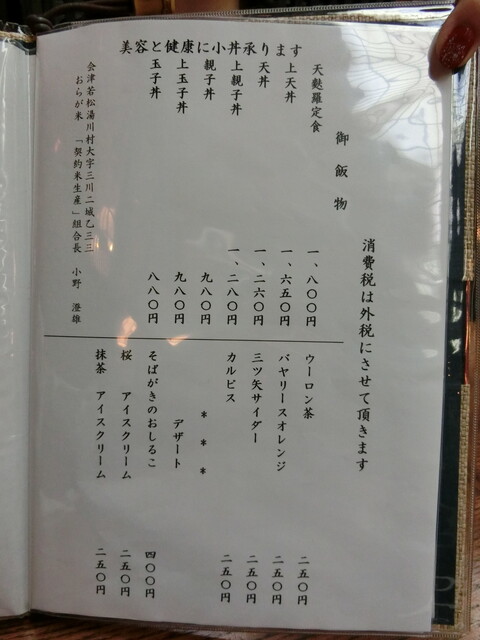 美容と健康に小丼承ります
消費税は外税にさせて頂きます
御飯物
天麩羅定食 一、八〇〇円
上天丼 一、六五〇円
天丼 一、二六〇円
上親子丼 一、二八〇円
親子丼 九八〇円
上玉子丼 九八〇円
玉子丼 八八〇円
会津若松湯川村大字三川二城乙三三
おらが米 「契約米生産」組合長 小野 澄雄
ウーロン茶 二五〇円
バヤリースオレンジ 二五〇円
三ツ矢サイダー 二五〇円
カルピス 二五〇円
* * *
デザート
そばがきのおしるこ 四〇〇円
桜 アイスクリーム 二五〇円
抹茶 アイスクリーム 二五〇円